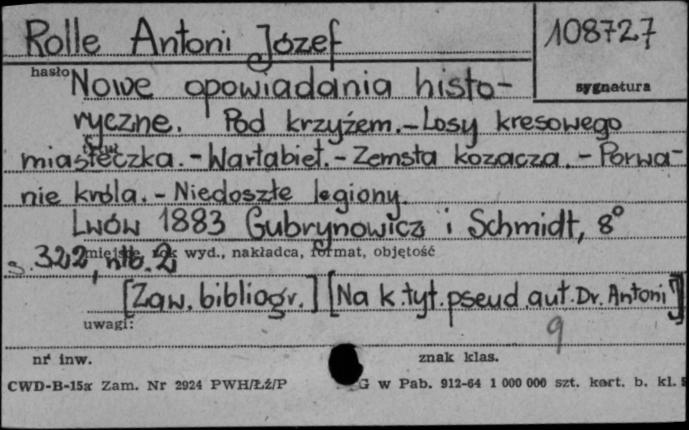 Rolle Antoni Józef
108727
hasło
sygnatura
Nowe opowiadania histo-
ryczne. Pod krzyżem.-Losy kresowego
miasteczka.-Wartabiet.-Zemsta kozacza.-Porwa-
nie króla.-Niedoszłe legiony.
Lwów 1883 Gubrynowicz i Schmidt, 8°
wyd., nakładca, format, objętość
s. 322, nlb. 2
[Zaw. bibliogr.] [Na k. tyt. pseud. aut. Dr. Antoni J.]
uwagi:
9
nr inw.
znak klas.
CWD-B-15a Zam. Nr 2924 PWH/Łź/P
G w Pab. 912-64 1 000 000 szt. kart. b. kl. 5